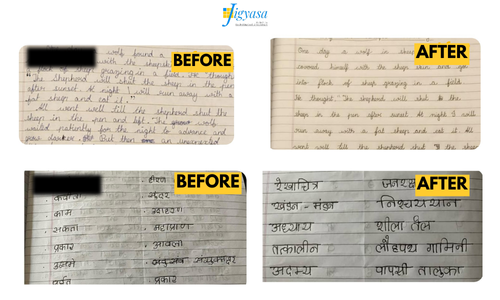 Jigyasa
BEFORE
wolf found a
with the sheepskin
flock of sheep grazing in a field. He thought
"The shepherd will shut the sheep in the pen
after sunset. At night I will run away with a
fat sheep and eat it."
All went well till the shepherd shut the
sheep in the pen and left. The wolf
waited patiently for the night to advance and
grow darker. But then an unexpected
AFTER
One day a wolf in sheep
covered himself with the sheep skin and
into flock of sheep grazing in a field
He thought "The shepherd will shut the
sheep in the pen after sunset At night I will
run away with a fat sheep and eat it All
went well till the shepherd shut the sheep
BEFORE
हिरण
कविता सुंदर
काम उदाहरण
सकता महाप्राण
प्रकार आवाज
उनमें
पर्वत प्रकार
AFTER
रेखाचित्र
खंडन - मंडन निश्चयवान
अध्याय शीला तल
तत्कालीन लौहपथ गामिनी
अदम्य पापसी तालुका